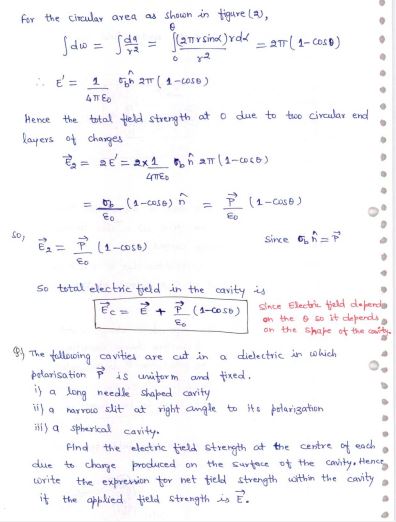 For the circular area as shown in figure (2),
∫dω = ∫ da/r² = ∫₀^θ (2πr sinα) r dα / r² = 2π(1-cosθ)
∴ E' = 1/4πε₀ σb n̂ 2π (1-cosθ)
Hence the total field strength at O due to two circular end
layers of charges
E⃗₂ = 2E' = 2×1/4πε₀ σb n̂ 2π (1-cosθ)
= σb/ε₀ (1-cosθ) n̂ = P⃗/ε₀ (1-cosθ)
So, E⃗₂ = P⃗/ε₀ (1-cosθ) Since σb n̂ = P⃗
So total electric field in the cavity is
E⃗c = E⃗ + P⃗/ε₀ (1-cosθ)
Since Electric field depends
on the θ so it depends
on the shape of the cavity.
Q) The following cavities are cut in a dielectric in which
polarisation P⃗ is uniform and fixed.
i) a long needle shaped cavity
ii) a narrow slit at right angle to its polarization
iii) a spherical cavity.
Find the electric field strength at the centre of each
due to charge produced on the surface of the cavity. Hence
write the expression for net field strength within the cavity
if the applied field strength is E⃗.